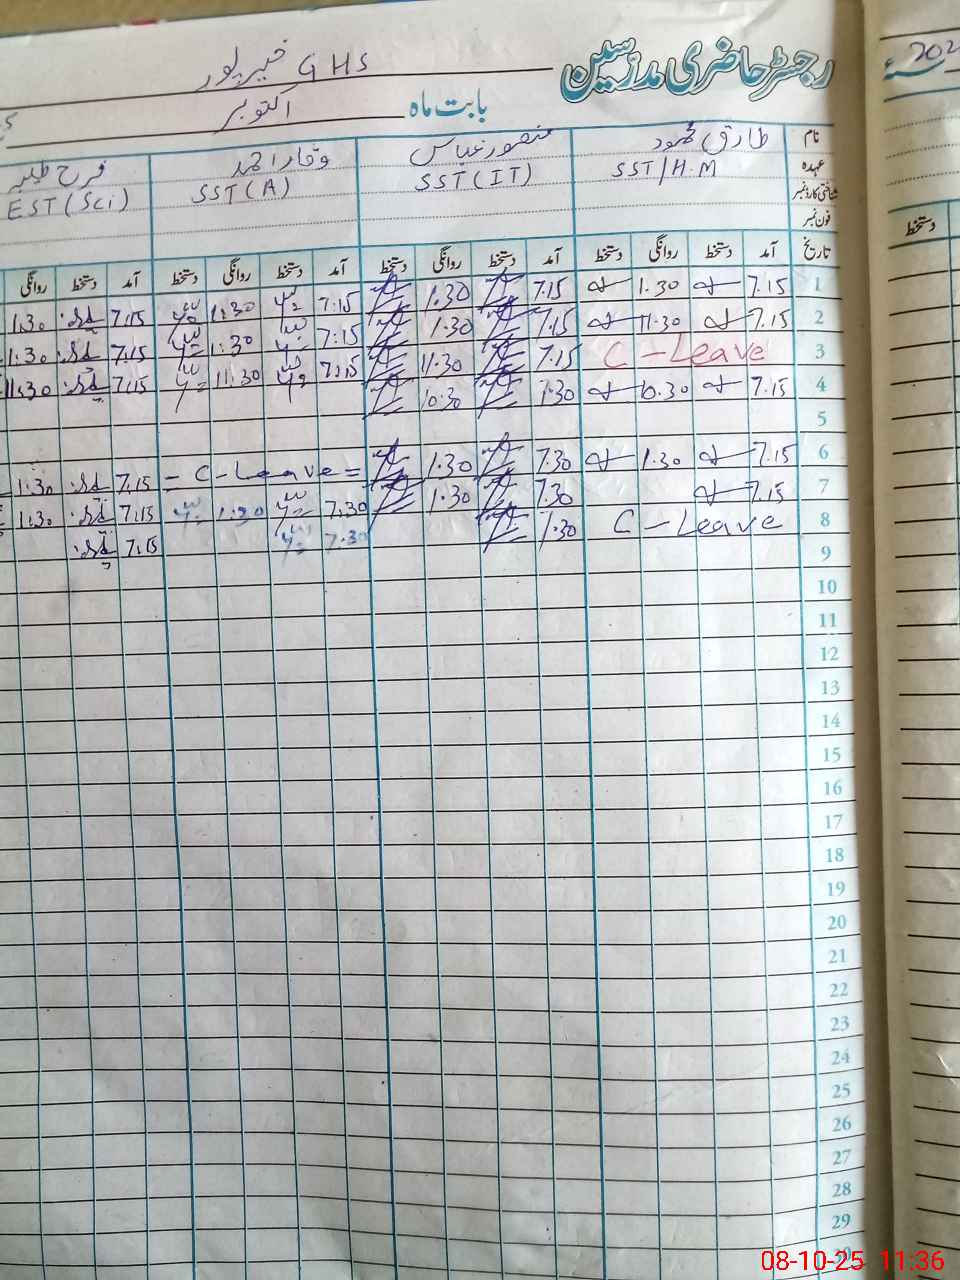 رجسٹر حاضری مدرسین GHS خیرپور
بابت ماہ اکتوبر
نام طارق محمود منصور عباس وقار احمد فرح طیبہ
عہدہ SST/H.M SST(IT) SST(A) EST(Sci)
شناختی کارڈ نمبر
فون نمبر
تاریخ آمد دستخط روانگی دستخط آمد دستخط روانگی دستخط آمد دستخط روانگی دستخط آمد دستخط روانگی
دستخط
1 7.15 1.30 7.15 1.30 7:15 1:30 7.15 1:30
2 7.15 11.30 7.15 1.30 7:15 1:30 7.15 1:30
3 C-Leave 7.15 11.30 7:15 11.30 7.15 11:30
4 7.15 10.30 7.30 10.30
5
6 7.15 1.30 7.30 1.30 = C-Leave = 7.15 1:30
7 7.15 7.30 1.30 7:30 1:30 7.15 1:30
8 C-Leave 7.30 7:30 7.15
9
10
11
12
13
14
15
16
17
18
19
20
21
22
23
24
25
26
27
28
29
30
08-10-25 11:36